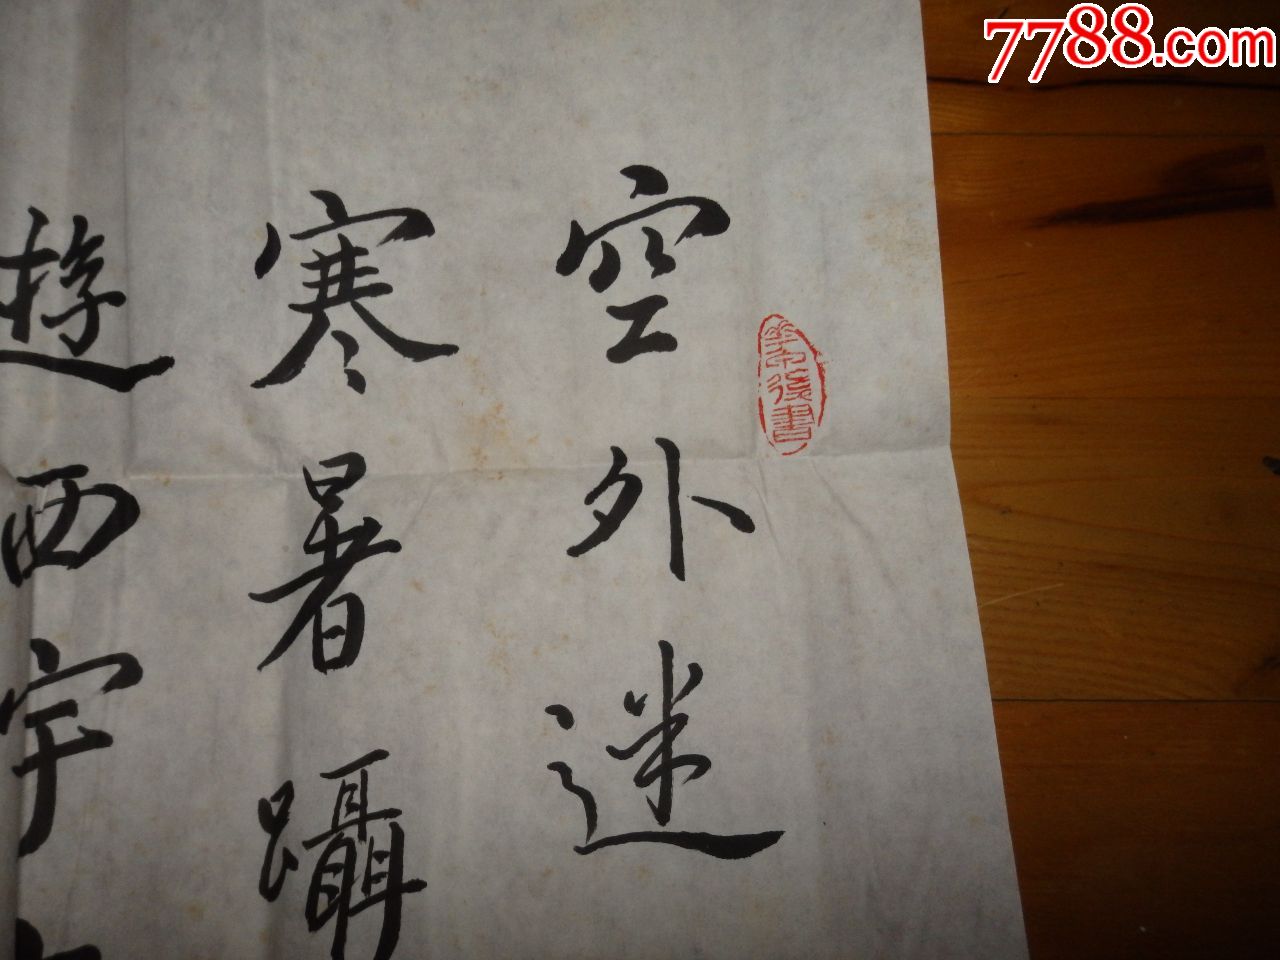 空外迷
寒暑躡
遊西宇
7788.com